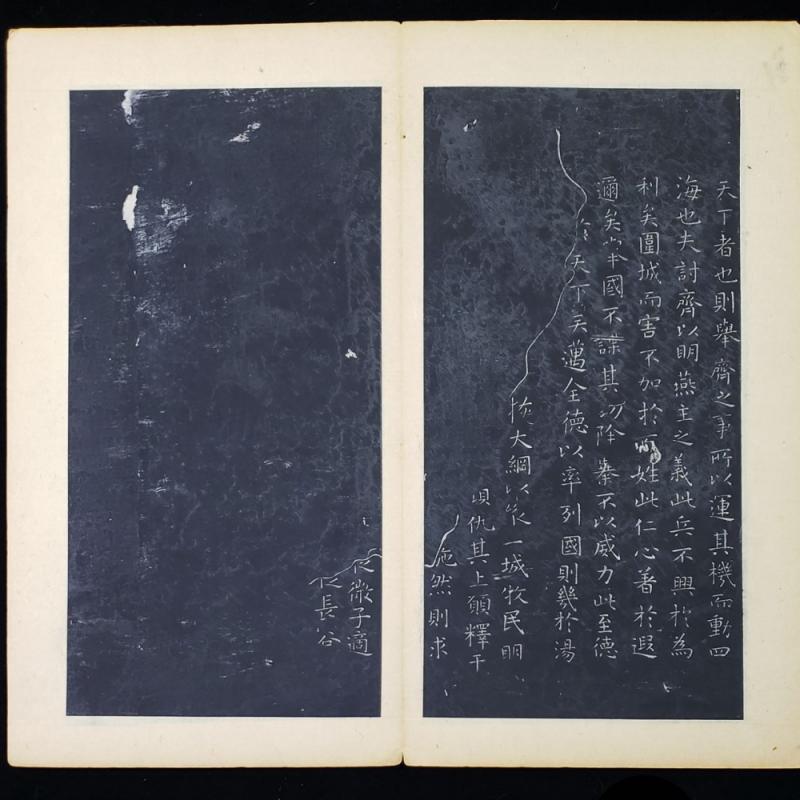 天下者也則舉齊之事所以運其機而動四
海也夫討齊以明燕主之義此兵不興於為
利矣圍城而害不加於百姓此仁心著於遐
邇矣舉國不謀其功除暴不以威力此至德
天下矣邁全德以率列國則幾於湯
大綱以城牧民明
仇其上願釋干
施然則求
微子適
長容